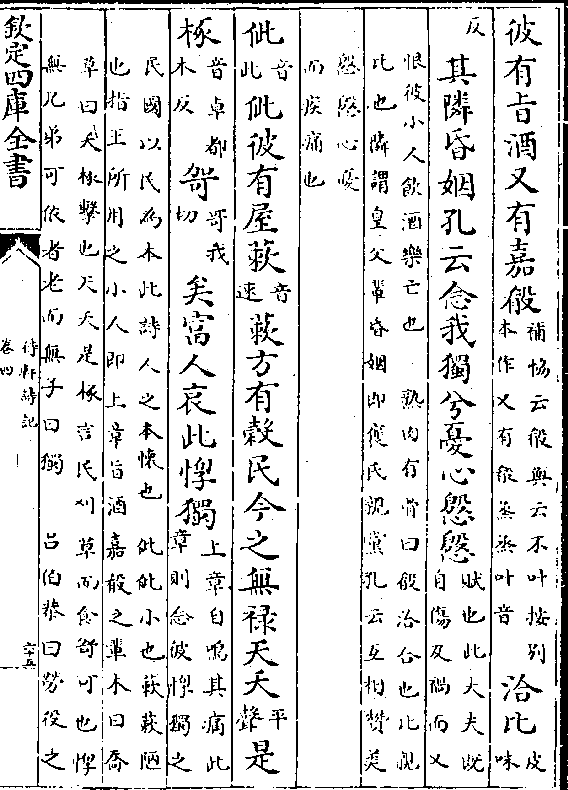 彼有㫖酒又有嘉殽
補協云殽與云不叶按别
本作又有殽蒸蒸叶音
洽比
皮
味
反
其隣昏姻孔云念我獨兮憂心慇慇
賦也此大夫既
自傷及隣而又
恨彼小人飲酒樂亡也 熟肉有骨曰殽洽合也比親
比也隣謂皇父輩昏姻即 氏親黨孔云互相贊美
慇慇心憂
而疾痛也
佌
音
此
佌彼有屋蔌
音
速
蔌方有榖民今之無禄天夭
平
聲
是
椓
音卓都
木反
哿
哥我
切
矣富人哀此惸獨
上章自鳴其痛此
章則念彼惸獨之
民國以民為本此詩人之本懷也 佌佌小也蔌蔌陋
也指王所用之小人即上章㫖酒嘉殽之輩木曰喬
草曰夭椓擊也天夭是椓言民刈草而食哿可也惸
無兄弟可依者老而無子曰獨 吕伯恭曰勞役之
欽定四庫全書
待軒詩記
卷四
六五